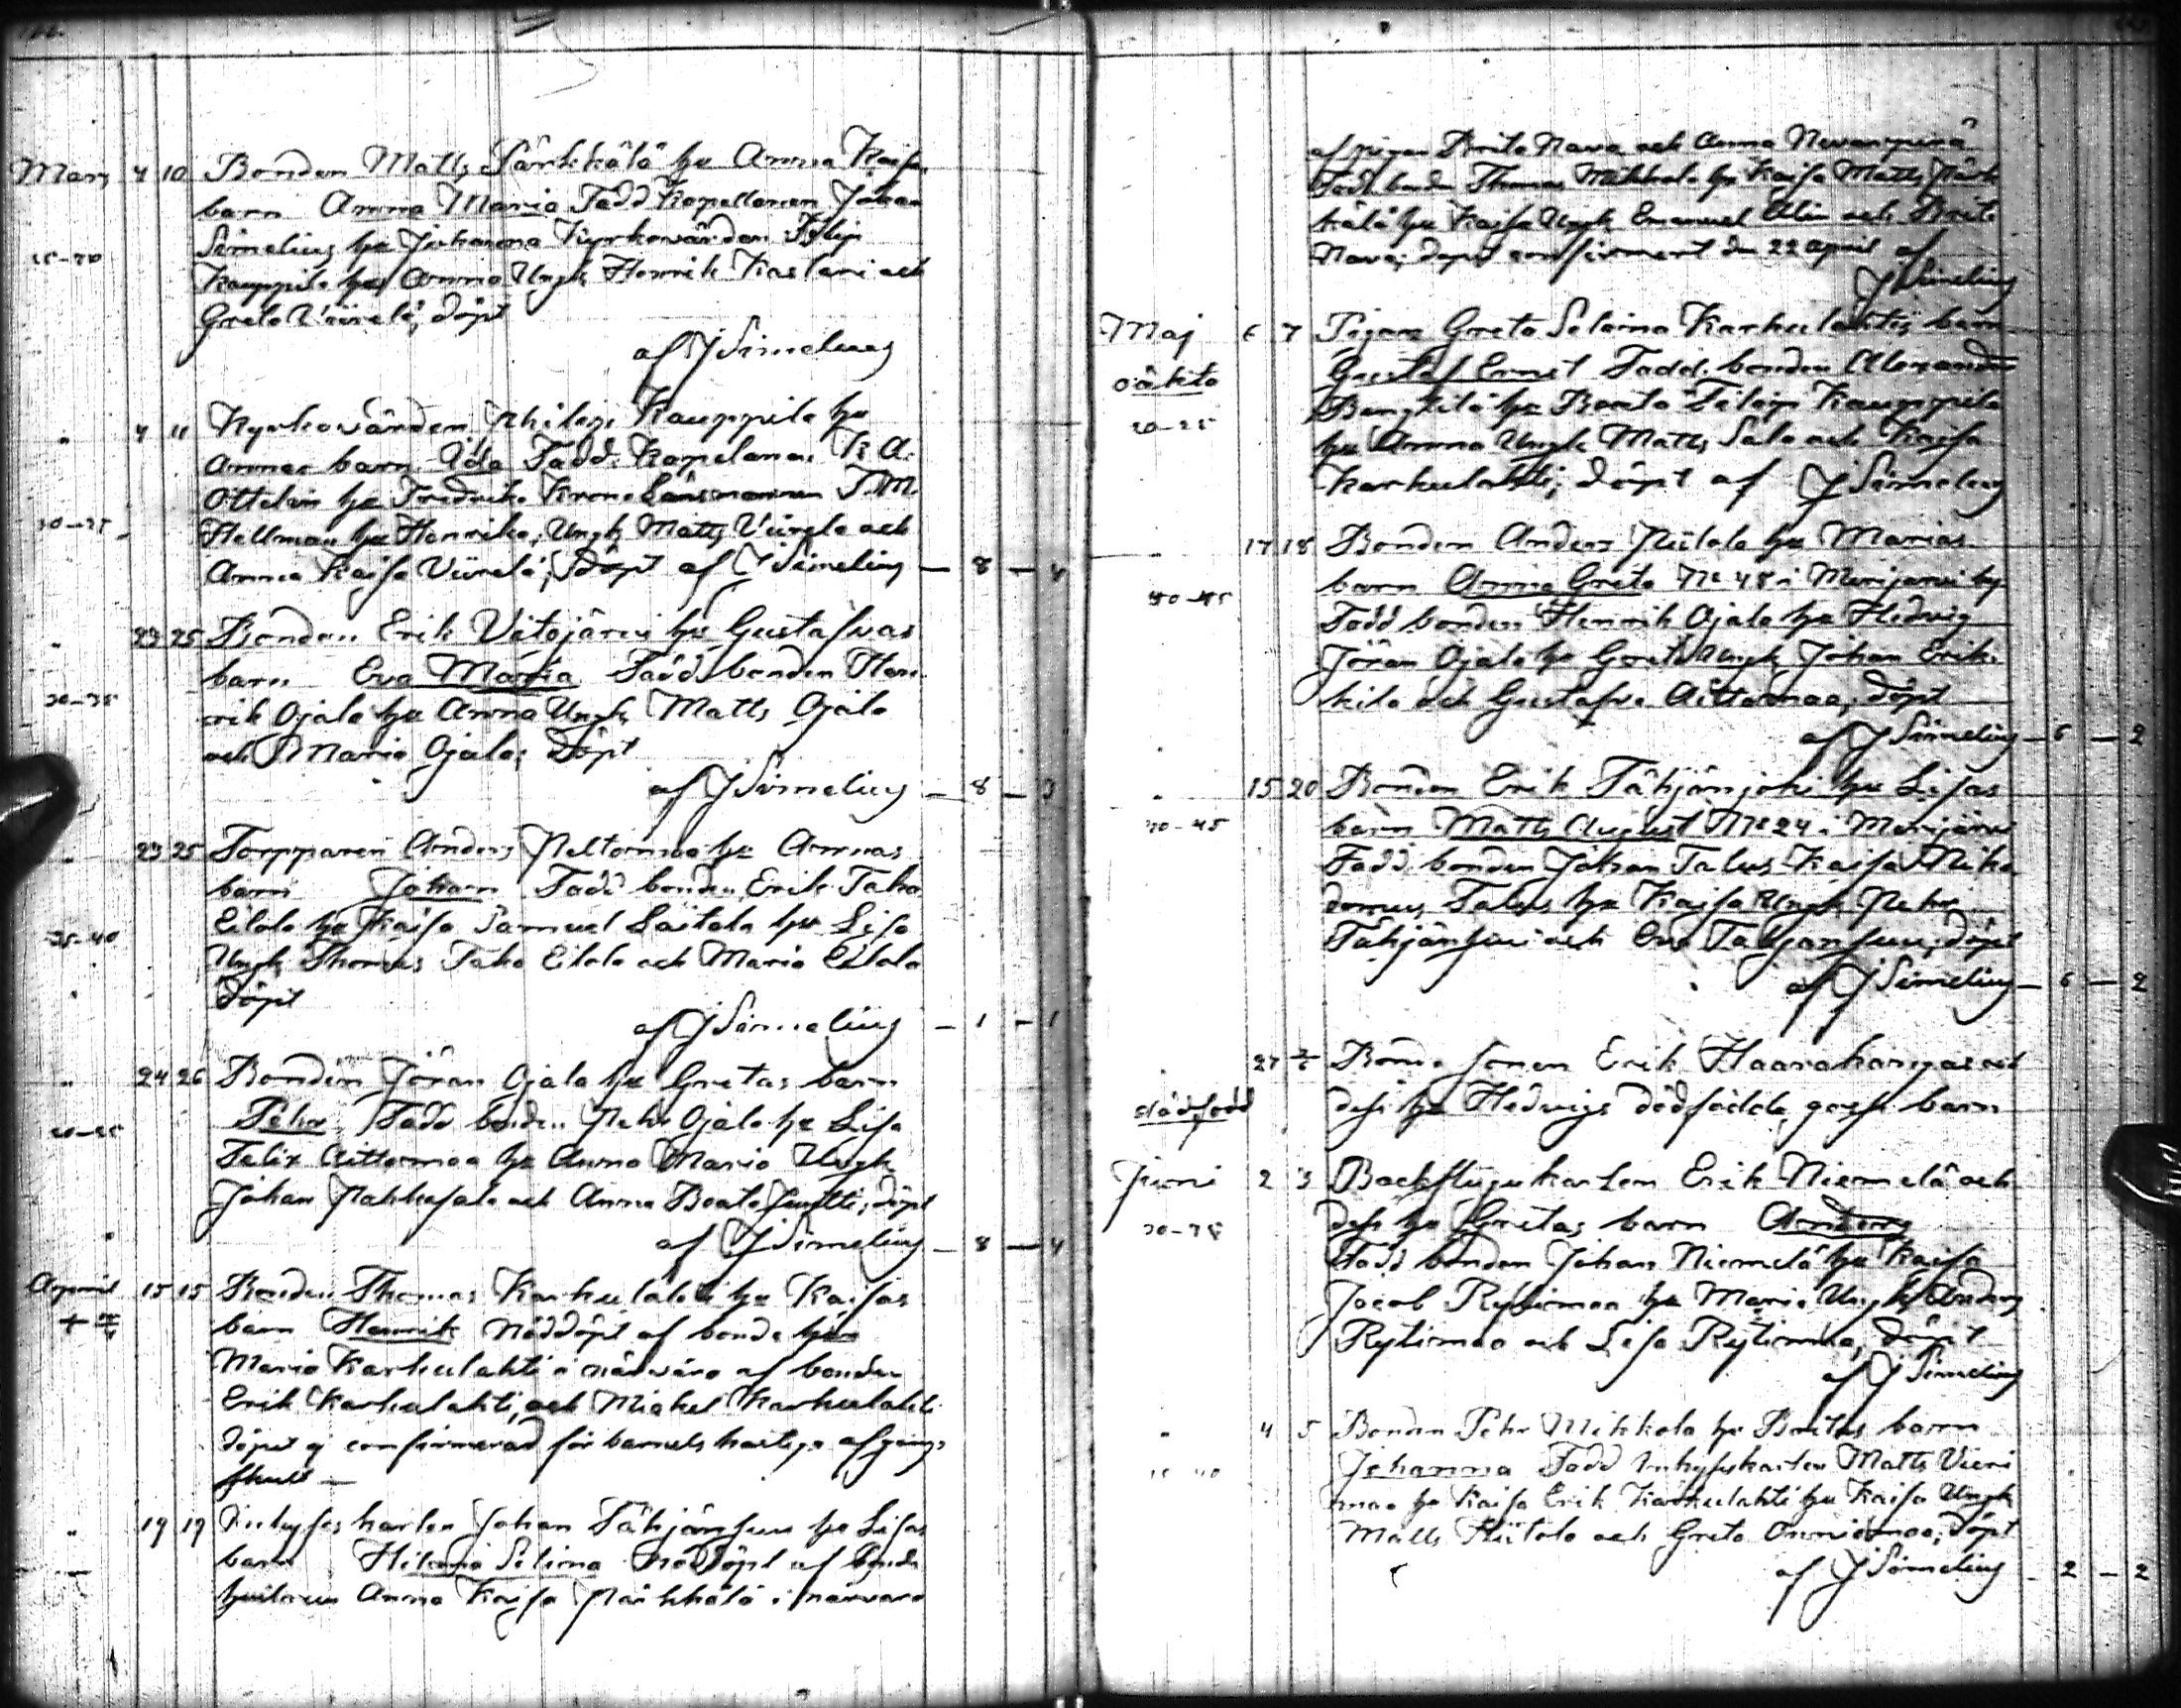 Mars 4 10 Bonden Matts Pärkkälä hu Anna Kaisas
barn Anna Maria Fadd Kapellanen Johan
Simelius hu Johanna Kyrkovärden Filip
25-30
Kauppila hu Anna Ungk Henrik Kaslari och
Greta Viirelä; döpt
af J Simelius
" 4 11 Kyrkovärden Philip Kauppila hu
Annas barn Ida Fadd. Kapelanen K A.
Ottelin hu Fredrika Krono Länsmannen J. M.
30-35 Hellman hu Henrika, Ungk Matts Viirela och
Anna Kaisa Viirelä; döpt af J Simelius — 8 — 4
" 23 25 Bonden Erik Vitajärvi hu Gustafvas
barn Eva Maria Fadd bonden Hen
30-35 rik Ojala hu Anna Ungk Matts Ojala
och Maria Ojala; döpt
af J Simelius — 8 — 3
" 23 25 Torpparen Anders Peltomaa hu Annas
barn Johan Fadd bonden Erik Taka
35-40 Eilola hu Kaisa Samuel Saitala hu Lisa
Ungk Thomas Taka Eilola och Maria Eilola
döpt
af J Simelius — 1 — 1
" 24 26 Bonden Jöran Ojala hu Gretas barn
Pehr Fadd bonden Pehr Ojala hu Lisa
Felix Aittamaa hu Anna Maria Ungk
Johan Pahkasalo och Anna Beata Juntti; döpt
af J Simelius — 8 — 4
April 15 15 Bonden Thomas Karhulahti hu Kaisas
barn Henrik Nöddöpt af bonde hu
Maria Karhulahti i närvaro af bonden
Erik Karhulahti, och Mickel Karhulahti
döpet ej confirmerad för barnets hastiga afgångs
skull —
" 19 19 Inhyses karlen Johan Tähjänsuu hu Lisas
barn Hilma Selima nöddöpt af bonde
hustrun Anna Kaisa Pärkkälä i närvaro
af pigan Brita Nava och Anna Nevanperä
Fadd bonden Thomas Mikkola hu Kaisa Matts Pärk
kälä hu Kaisa Ungk Emanuel Alin och Brita
Nava; dopet confirmerat den 22 April af
J Simelius
Maj 6 7 Pigan Greta Selaina Karhulahtis barn
oäkta Gustaf Ernst Fadd. bonden Alexander
Bengtilä hu Beata Filip Kauppila
20-25
hu Anna Ungk Matts Salo och Kaisa
Karhulahti; döpt af J Simelius
" 17 18 Bonden Anders Piilola hu Marias
barn Anna Greta No 48 i Merijärvi by
40-45
Fadd bonden Henrik Ojala hu Hedvig
Jöran Ojala hu Greta Ungk Johan Erik
kila och Gustafva Aittamaa; döpt
af J Simelius — 6 — 2
" 15 20 Bonden Erik Tähjänjoki hu Lisas
40-45 barn Matts August No 24 i Merijärvi
Fadd. bonden Johan Talus Kaisa Nika
demus Talus hu Kaisa Ungk Pehr
Tähjänsuu och Eva Tähjänsuu; döpt
af J Simelius — 6 — 2
27 Bonde sonen Erik Haarakangas och
dödfödd dess hu Hedvigs dödfödda gosse barn
Juni 2 3 Backstugukarlen Erik Niemelä och
dess hu Gretas barn Anders
Fadd bonden Johan Niemelä hu Kaisa
Jacob Rytimaa hu Maria Ungk Anders
Rytimaa och Lisa Rytimaa, döpt
af J Simelius
" 4 5 Bonden Pehr Mikkola hu Britas barn
Johanna Fadd Inhyseskarlen Matts Vieri
maa hu Kaisa Erik Karhulahti hu Kaisa Ungk
Matts Hiitola och Greta Onniomaa; döpt
af J Simelius — 2 — 2